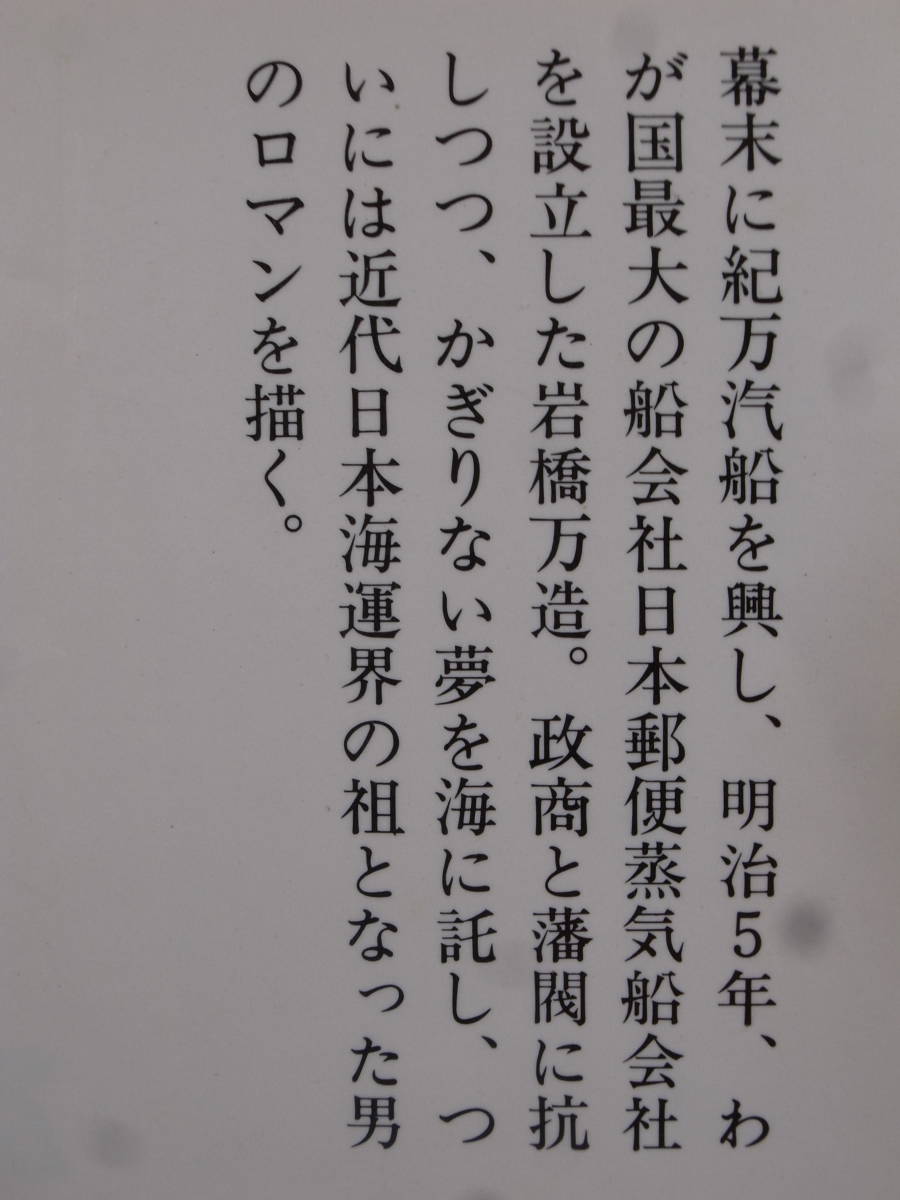 幕末に紀万汽船を興し、明治5年、わ
が国最大の船会社日本郵便蒸気船会社
を設立した岩橋万造。政商と藩閥に抗
しつつ、かぎりない夢を海に託し、つ
いには近代日本海運界の祖となった男
のロマンを描く。